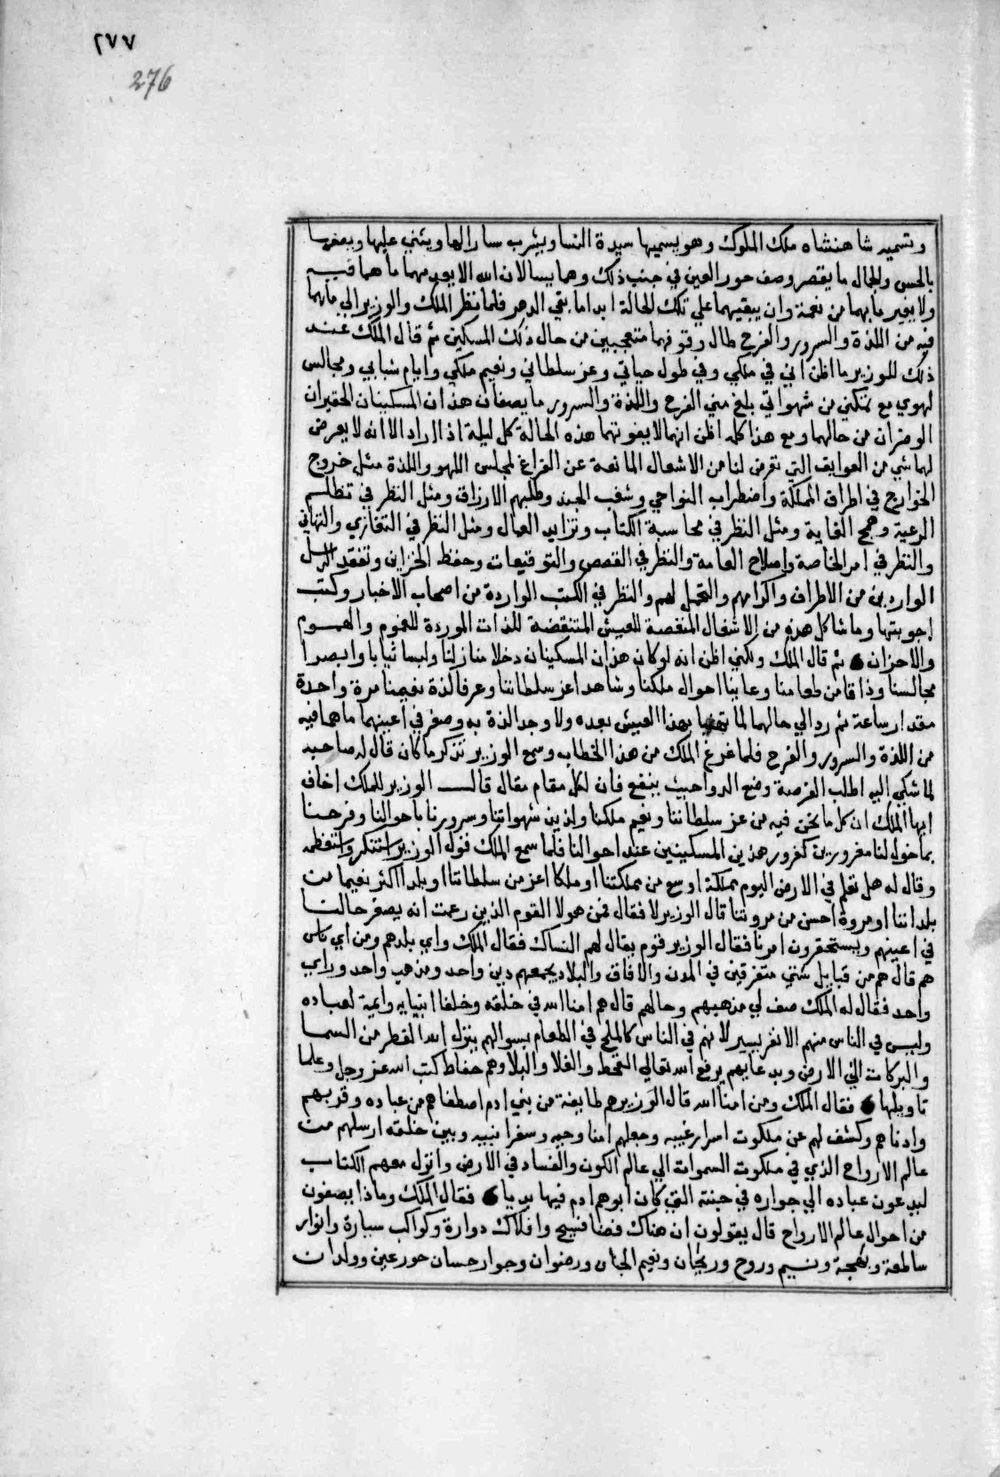 ٢٧٧
276
وتسميه شاهنشاه ملك الملوك وهو يسميها سيدة النسا ويشرب سارالها ويثني عليها ويصفها
بالحسن والجمال ما يقصر وصف حور العين في جنب ذلك وهما يسالان الله الا يعدمهما ما هما فيه
ولا يغير ما بهما من نعمة وان يبقيهما علي تلك الحالة ابدا ما بقي الدهر فلما نظر الملك والوزير الي ما بهما
فيه من اللذة والسرور والفرح طال وقوفهما متعجبين من حال ذلك المسكين ثم قال الملك عند
ذلك للوزير ما اظن اني في ملكي وفي طول حياتي وعز سلطاني ونعيم ملكي وايام شبابي ومجالس
لهوي مع تمكني من شهواتي بلغ مني الفرح واللذة والسرور ما يصفان هذان المسكينان الحقيران
الوضران من حالهما ومع هذا كله اظن انهما لا يفوتهما هذه الحالة كل ليلة اذا اراد الا انه لا يعرض
لهما شي من العوايق التي تعرض لنا من الاشغال المانعة عن الفراغ لمجلس اللهو واللذة مثل خروج
الخوارج في اطراف المملكة واضطراب النواحي وشغب الجند وطلبهم الارزاق ومثل النظر في تظلم
الرعية وهمج الغاية ومثل النظر في محاسبة الكتاب وتزايد العمال ومثل النظر في التعازي والتهاني
والنظر في امر الخاصة واصلاح العامة والنظر في القصص والتوقيعات وحفظ الخزاين وتفقد الرسل
الواردين من الاطراف واكرامهم والتجمل لهم والنظر في الكتب الواردة من اصحاب الاخبار وكتب
اجوبتها وما شاكل هذه من الاشغال المنغصة للعيش المتنغصة للذات الموردة للغموم والهموم
والاحزان ثم قال الملك ولكني اظن انه لو كان هذان المسكينان دخلا منازلنا ولبسا ثيابا وابصرا
مجالسنا وذاقا من طعامنا وعاينا احوال ملكنا وشاهدا عز سلطاننا وعرفا لذة نعيمنا مرة واحدة
مقدار ساعة ثم ردا الي حالهما لما تهنيا بهذا العيش بعده ولا وجدا لذة به وصغر في اعينهما ما هما فيه
من اللذة والسرور والفرح فلما فرغ الملك من هذا الخطاب وسمع الوزير تذكر ما كان قال له صاحبه
لما شكي اليه اطلب الفرصة وضع الدوا حيث ينفع فان لكل مقام مقال قال الوزير للملك اخاف
ايها الملك ان كل ما نحن فيه من عز سلطاننا ونعيم ملكنا ولذيذ شهواتنا وسرورنا باحوالنا وفرحنا
بما خول لنا مغرورين كغرور هذين المسكينين عند احوالنا فلما سمع الملك قول الوزير استنكر واستفظعه
وقال له هل تعلم في الارض اليوم مملكة اوسع من مملكتنا او ملكا اعز من سلطاننا او بلدا اكثر نعيما من
بلداننا او مروة احسن من مروتنا قال الوزير لا فقال فمن هولا القوم الذين زعمت انه يصغر حالنا
في اعينهم ويستحقرون امرنا فقال الوزير قوم يقال لهم النساك فقال الملك واي بلدهم ومن اي ناس
هم قال هم من قبايل شتي متفرقين في المدن والافاق والبلاد يجمعهم دين واحد ومذهب واحد وراي
واحد فقال له الملك صف لي مذهبهم وحالهم قال هم امنا الله في خلقه وخلفا انبيايه وايمة لعباده
وليس في الناس منهم الا نفر يسير لانهم في الناس كالملح في الطعام بسوالهم ينزل الله القطر من السما
والبركات الي الارض وبدعايهم يرفع الله تعالي القحط والغلا والبلا وهم حفاظ كتب الله عز وجل وعلما
تاويلها فقال الملك ومن امنا الله قال الوزير هم طايفة من بني ادم اصطفاهم من عباده وقربهم
وادناهم وكشف لهم عن ملكوت اسرار غيبه وجعلهم امنا وحيه وسفرا بينه وبين خلقه ارسلهم من
عالم الارواح الذي في ملكوت السموات الي عالم الكون والفساد في الارض وانزل معهم الكتاب
ليدعون عباده الي جواره في جنته التي كان ابوهم ادم فيها بديا فقال الملك وماذا يصفون
من احوال عالم الارواح قال يقولون ان هناك فضا فسيح وافلاك دوارة وكواكب سيارة وانوار
ساطعة وبهجة ونسيم وروح وريحان ونعيم الجنان ورضوان وجوار حسان حور عين وولدان